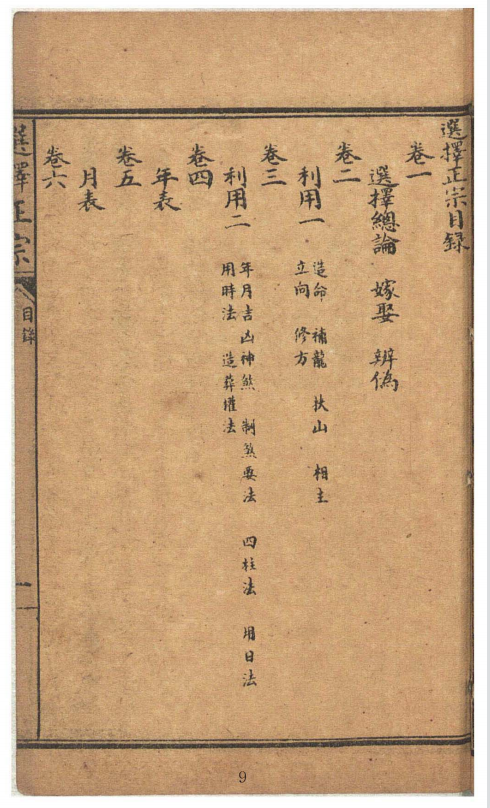 選擇正宗目錄
卷一
選擇總論 嫁娶 辨偽
卷二
利用一 造命 補龍 扶山 相主
立向 修方
卷三
利用二 年月吉凶神煞 制煞要法 四柱法 用日法
用時法 造葬權法
卷四
年表
卷五
月表
卷六
選擇正宗
目錄
一
9